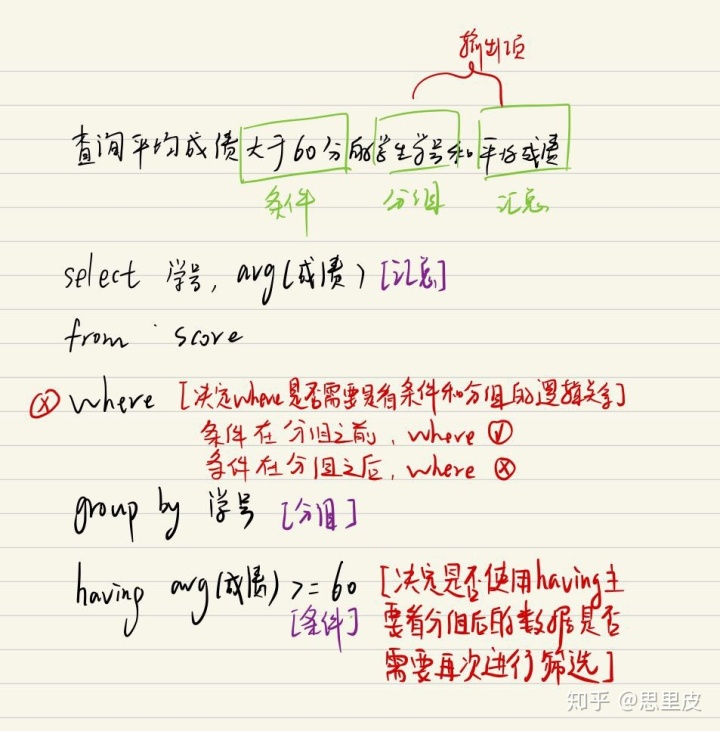 输出项
查询平均成绩大于60分的学生学号和平均成绩
条件 分组 汇总
select 学号, avg(成绩) [汇总]
from score
ⓧ where [决定where是否需要是看条件和分组的逻辑关系]
条件在分组之前, where ✓
条件在分组之后, where ⓧ
group by 学号 [分组]
having avg(成绩) >= 60 [决定是否使用having主
[条件] 要看分组后的数据是否
需要再次进行筛选]
知乎 @思里皮